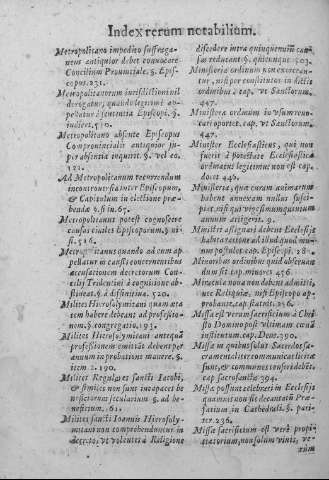 Index rerum notabilium.
Metropolitano impedito suffraga-
neus antiquior debet conuocare
Concilium Prouinciale. §. Epis-
copus. 231.
Metropolitanorum iurisdictioni nil
derogatur, quando legitimi ap-
pellatur à sententia Episcopi. §.
iudices. 510.
Metropolitano absente Episcopus
Comprouincialis antiquior su-
per absentia requirit. §. vel eo.
122.
Ad Metropolitanum recurrendum
in controuersia inter Episcopum,
& Capitulum in electione præ-
benda
Metropolitanus potest cognoscere
causas ciuiles Episcoporum. §. ni-
si. 516.
Metropolitanus quando ad eum ap-
pellatur in causis concernentibus
accusationem decretorum Con-
cilij Tridentini à cognitione ab-
stineat. §. à diffinitiua. 520.
Milites Hierosolymitani quam æta-
tem habere debeant ad professio-
nem. §. congregatio. 193.
Milites Hierosolymitani antequã
professionem emittãt debent per
annum in probatione manere. §.
item 2. 190.
Milites Regulares Sancti Iacobi,
& similes non sunt incapaces be-
neficiorum secularium §. ad be-
neficium. 61.
Milites sancti Ioannis Hierosoly-
mitani non comprehenduntur in
decreto, vt voluntas à Religione
discedere intra quinquennium cau-
sas reducant. §. quicunque 503.
Ministeria ordinum non exercean-
tur, nisi per constitutos in dictis
ordinibus. cap. vt Sanctorum.
447.
Ministeria ordinum in vsum reuo-
cari oportet. cap. vt Sanctorum.
446.
Minister Ecclesiasticus, qui non
fuerit à potestate Ecclesiastica
ordinatus legitimus non est cap.
docent. 446.
Ministeria, quæ curam animarum
habent annexam nullus susci-
piat, nisi qui vigesimumquintum
annum attigerit. 9.
Ministri assignari debent Ecclesiæ
habita ratione ad illud quod mu-
nium postulat. cap. Episcopi. 28
Minoribus ordinibus quid obseruan-
dum sit cap. minores 456.
Miracula noua non debent admitti,
nec Reliquiæ, nisi Episcopo ap-
probante, cap. statuit. 356.
Missa est verum sacrificium à Chri-
sto Domino post vltimam cœnã
institutum. cap. Deus. 390.
Missæ in quibus solus Sacerdos sa-
cramentaliter communicat licitæ
sunt, & communes censeri debẽt.
cap. sacrosancta. 394.
Missæ possunt celebrari in Ecclesijs
quamuis non sit decantatũ Præ-
fatium in Cathedrali. §. pari-
ter. 236.
Missæ sacrificium est verè propi-
tiatorium, non solum viuis, ve-
rum